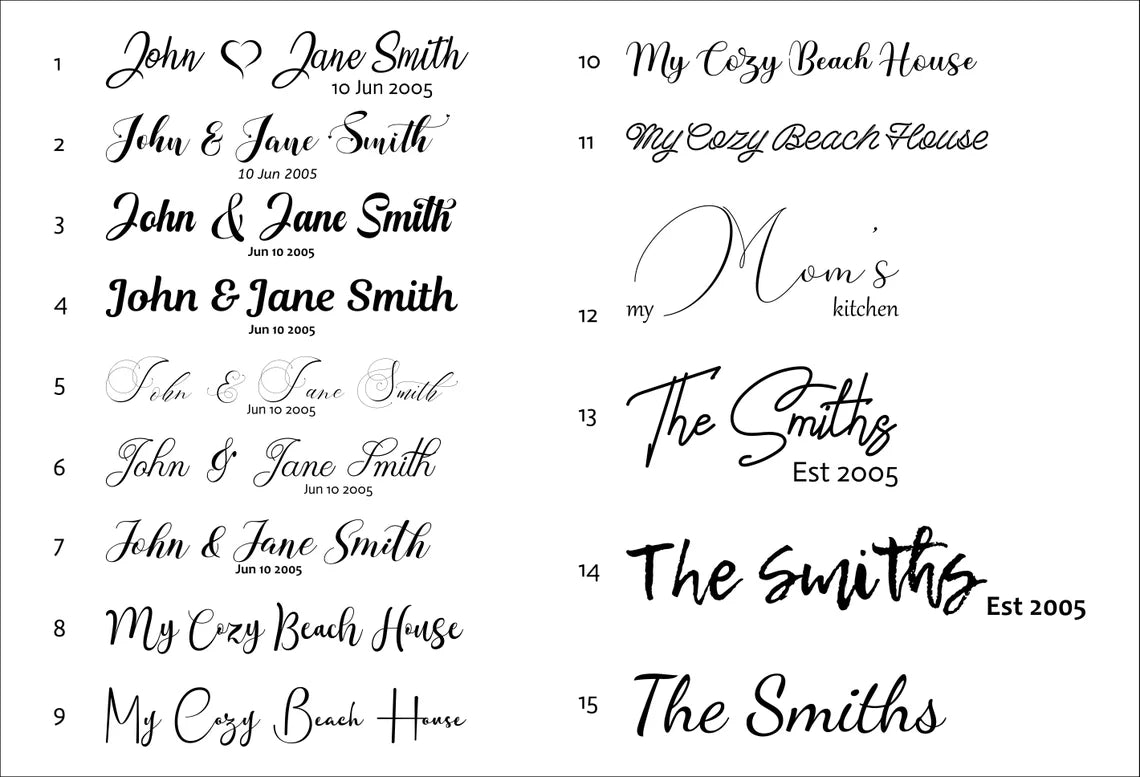 1 John ♡ Jane Smith
10 Jun 2005
2 John & Jane Smith
10 Jun 2005
3 John & Jane Smith
Jun 10 2005
4 John & Jane Smith
Jun 10 2005
5 John & Jane Smith
Jun 10 2005
6 John & Jane Smith
Jun 10 2005
7 John & Jane Smith
Jun 10 2005
8 My Cozy Beach House
9 My Cozy Beach House
10 My Cozy Beach House
11 My Cozy Beach House
12 my Mom's kitchen
13 The Smiths
Est 2005
14 The Smiths
Est 2005
15 The Smiths